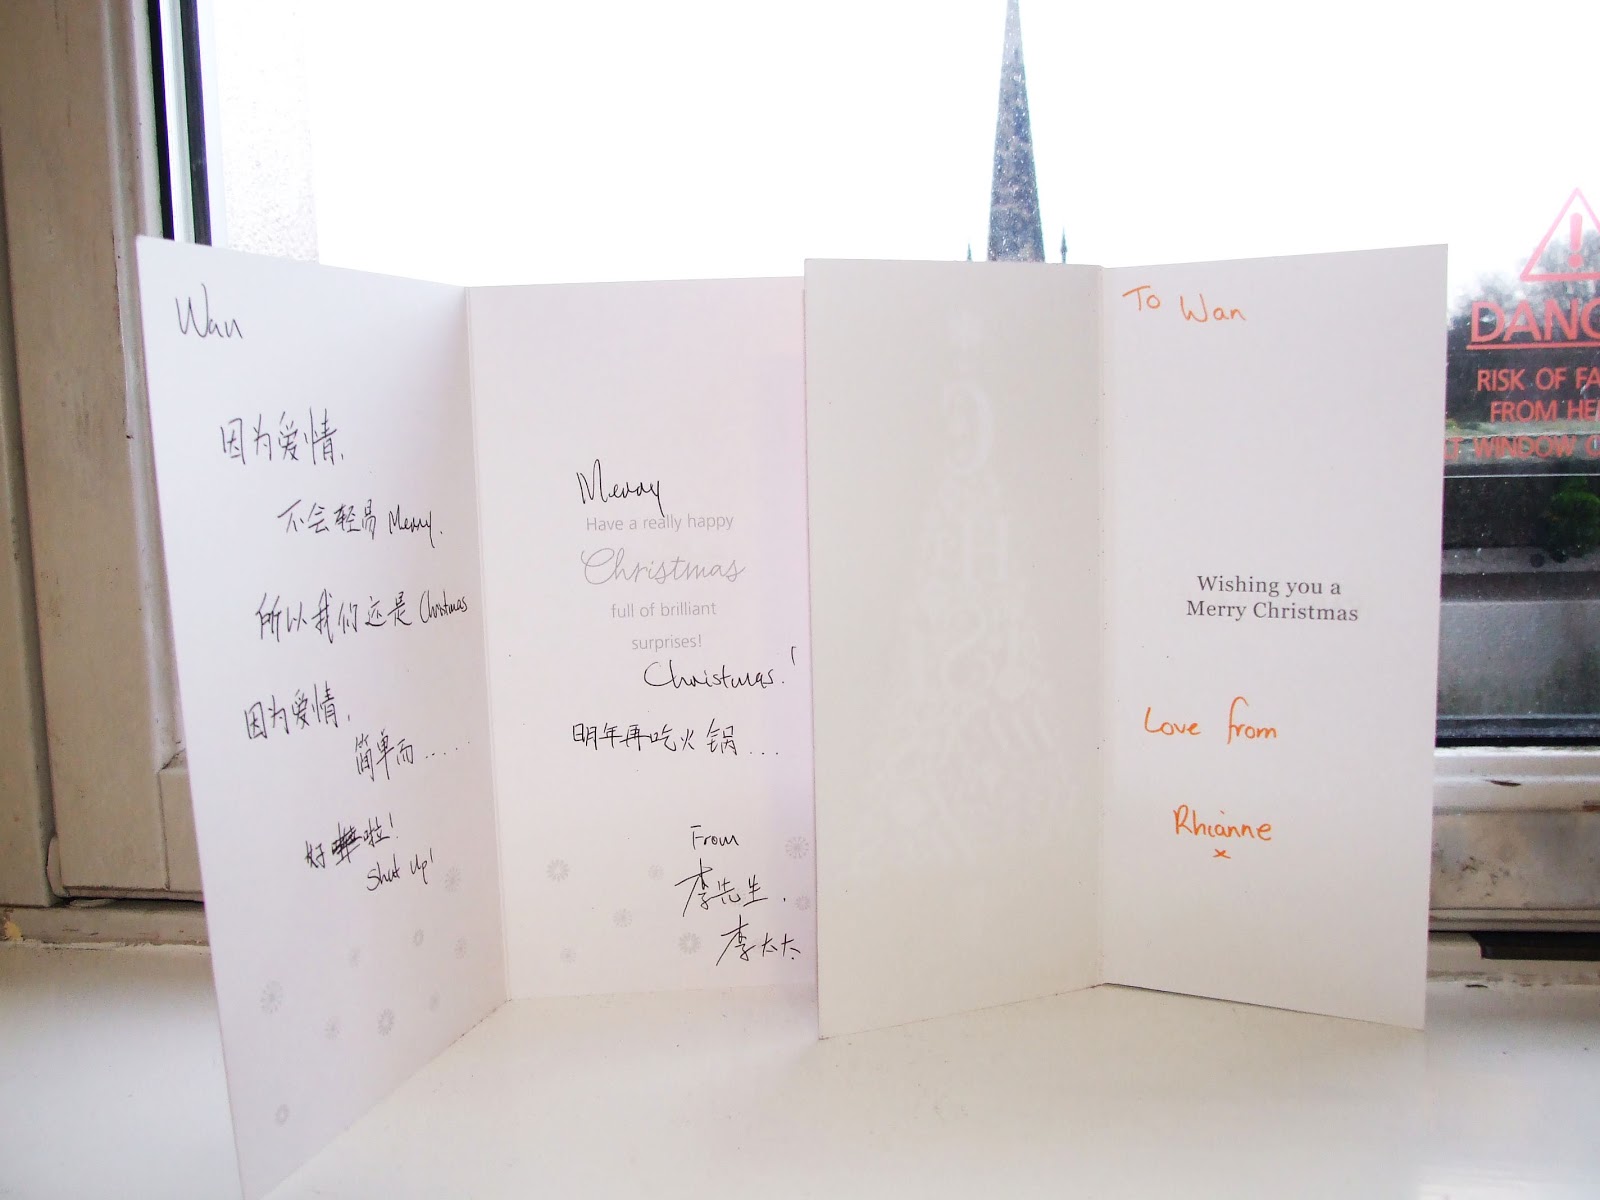 Wan
因为爱情,
不会轻易 Merry,
所以我们还是 Christmas
因为爱情,
简单而......
好 啦!
Shut up!
Merry
Have a really happy
Christmas
full of brilliant
surprises!
Christmas!
明年再吃火锅...
From
李先生.
李太太
To Wan
Wishing you a
Merry Christmas
Love from
Rhianne
x
DANG
RISK OF FA
FROM HE
WINDOW